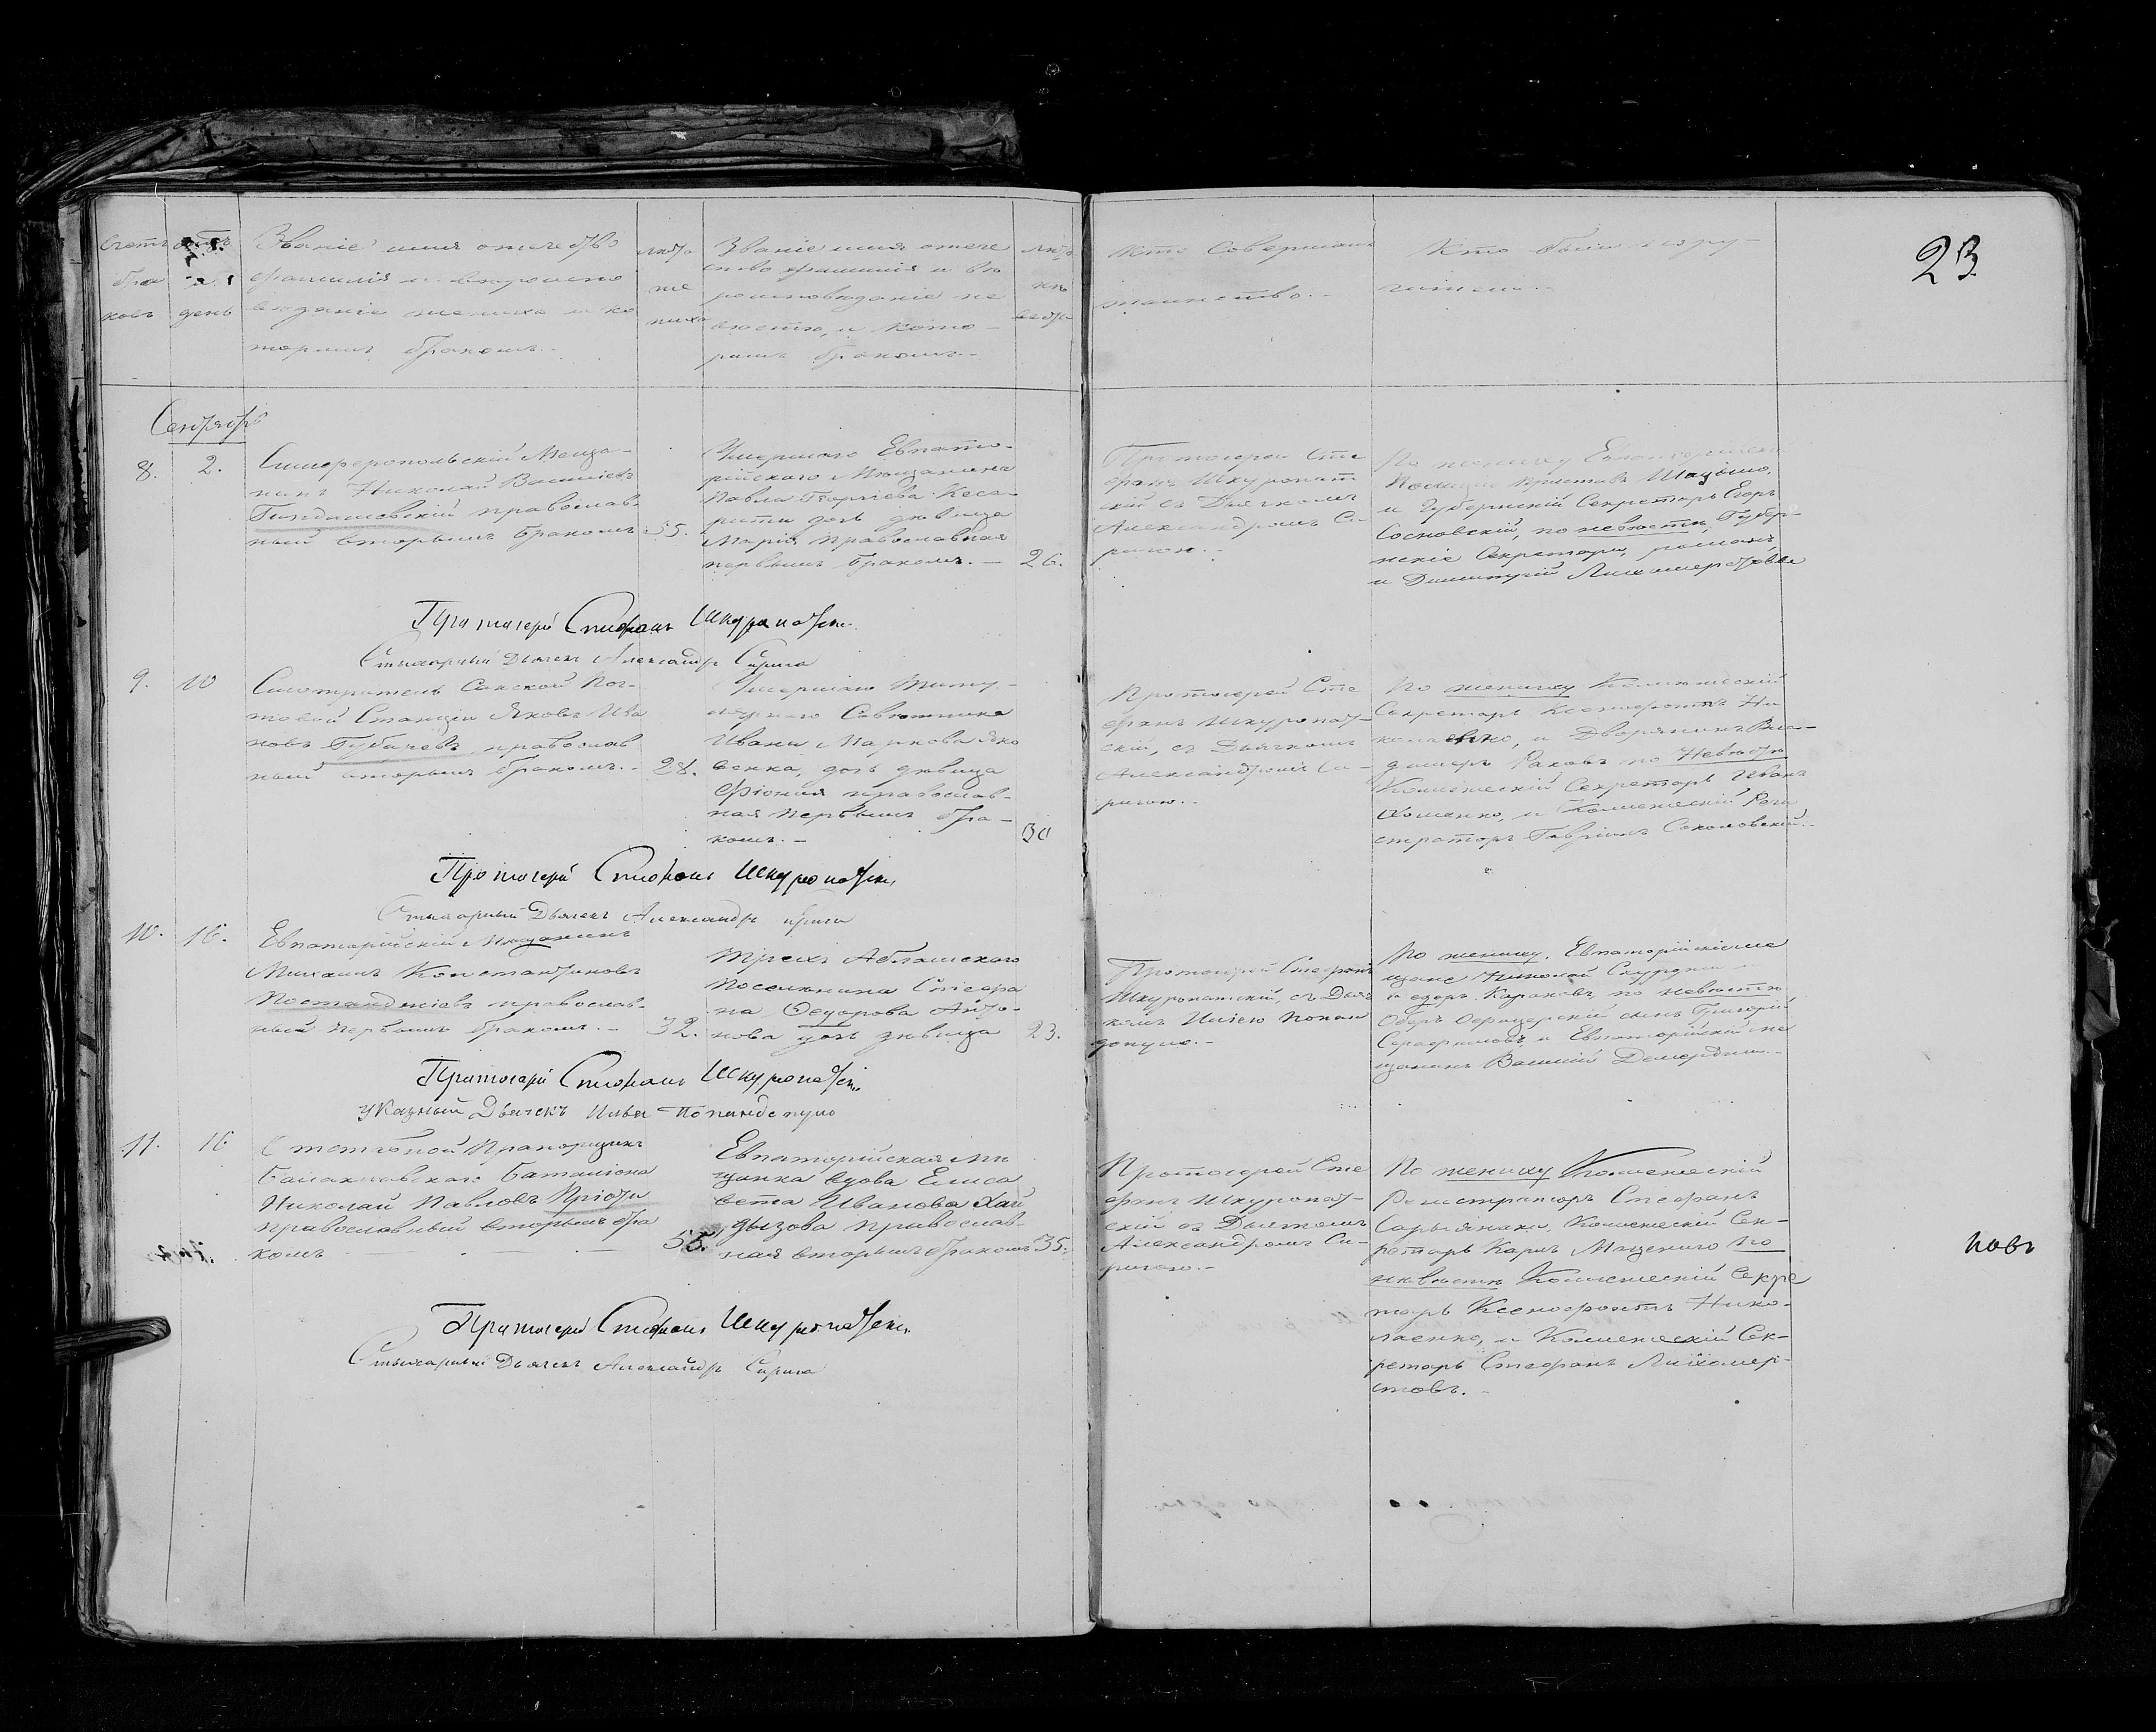 23
Счетъ бра ковъ
день
Званіе имя отечество
фамилія и вѣроиспо
вѣданіе жениха и ко
торымъ бракомъ.
лѣта
же
ниха
Званіе имя отече
ство фамилія и вѣ
роисповѣданіе не
вѣсты, и кото-
рымъ бракомъ.
лѣта
невѣс
Кто совершалъ
таинство.
Кто были пору-
чители.
Сентябрь
8. 2.
Симферопольскій Меща-
нинъ Николай Васильевъ
православ-
ный вторымъ бракомъ 55.
Умершаго Евпато-
рійскаго Мѣщанина
Павла Георгіева Кеса-
рити дочь дѣвица
Марія православная
первымъ бракомъ. — 26.
Протоіерей Сте
фанъ Шкуропат
скій съ Дьячкомъ
Александромъ Си-
ригою.
По жениху Евпаторійской
Полиціи Приставъ
и Губернскій Секретарь Егоръ
Сосновскій, по невѣстѣ, Губер-
нскіе Секретари, романъ,
и Димитрій Лихошерстовы
Протоіерей Стефанъ Шкуропатскій
Стихарный Дьячекъ Александръ Сирига
9. 10
Смотритель Сакской Поч-
товой Станціи Яковъ Ива
новъ Губачевъ православ
ный вторымъ бракомъ. — 28.
Умершаго Титу-
лярнаго Совѣтника
Ивана Маркова Яко
венка, дочь дѣвица
Фіонія православ-
ная первымъ бра-
комъ. — 30
Протоіерей Сте
фанъ Шкуропат-
скій, съ Дьячкомъ
Александромъ Си-
ригою.
По жениху Коллежскій
Секретарь Ксенофонтъ Ни
колаенко, и Дворянинъ Вла-
димеръ Раковъ по Невѣстѣ
Коллежскій Секретарь Иванъ
и Коллежскій Реги
страторъ Гавріилъ Соколовскій.
Протоіерей Стефанъ Шкуропатскій
Стихарный Дьячекъ Александръ Сирига
10. 16.
Евпаторійскій Мѣщанинъ
Михаилъ Константиновъ
православ-
ный первымъ бракомъ. — 32.
Трехъ Абламскаго
Поселянина Стефа
на Ѳедорова Анто-
нова дочь дѣвица 23.
Протоіерей Стефанъ
Шкуропатскій, съ Дьяч
комъ Ильею Попан
допуло.
По жениху, Евпаторійскіе ме
щане Николай
и едоръ Караковъ, по невѣстѣ
Оберъ Офицерскій сынъ Григорій
Серафимовъ, и Евпаторійскій ме
щанинъ Василій Демерджи.
Протоіерей Стефанъ Шкуропатскій
Указный Дьячекъ Илья Попандопуло
11. 16
Отставной Прапорщикъ
Балаклавскаго Баталіона
Николай Павловъ
православный вторымъ бра
комъ — 55.
Евпаторійская мѣ
щанка вдова Елиса
вета Иванова Хай
дызова православ-
ная вторымъ бракомъ 35.
Протоіерей Сте
фанъ Шкуропат-
скій съ Дьячкомъ
Александромъ Си-
ригою.
По жениху Коллежскій
Регистраторъ Стефанъ
Сарыянаки, Коллежскій Сек-
ретарь Карлъ по
невѣстѣ Коллежскій Секре
тарь Ксенофонтъ Нико-
лаенко, и Коллежскій Сек-
ретарь Стефанъ Лихошер-
стовъ.
новъ
Протоіерей Стефанъ Шкуропатскій
Стихарный Дьячекъ Александръ Сирига